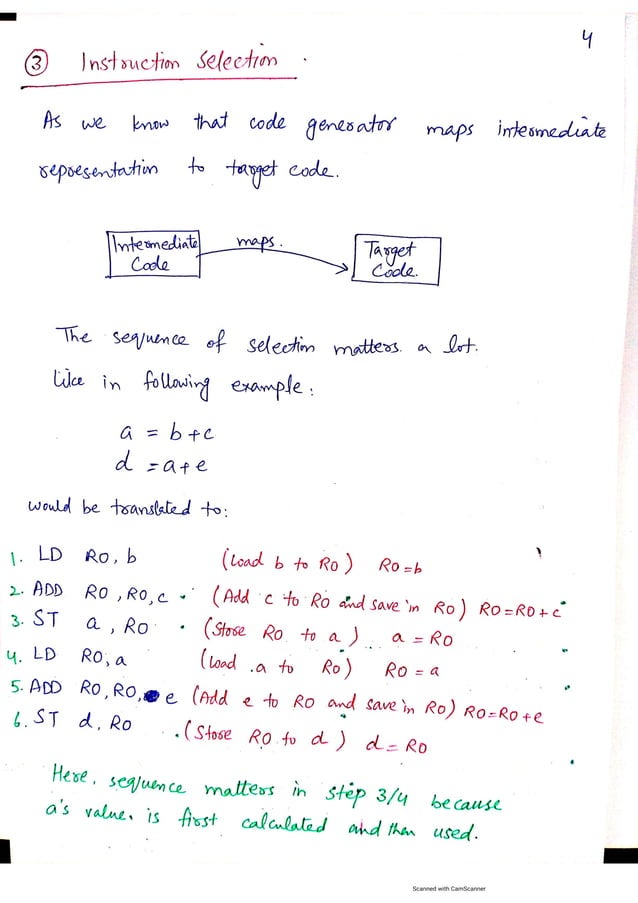 4
③ Instruction Selection.
As we know that code generator maps intermediate
representation to target code.
Intermediate Code
maps.
Target Code.
The sequence of selection matters a lot.
Like in following example:
a = b+c
d = a+e
would be translated to:
1. LD R0, b (Load b to R0) R0=b
2. ADD R0, R0, c (Add c to R0 and save in R0) R0=R0+c
3. ST a, R0 (Store R0 to a) a = R0
4. LD R0, a (Load a to R0) R0 = a
5. ADD R0, R0, e (Add e to R0 and save in R0) R0=R0+e
6. ST d, R0 (Store R0 to d) d = R0
Here, sequence matters in step 3/4 because
a's value is first calculated and then used.
Scanned with CamScanner